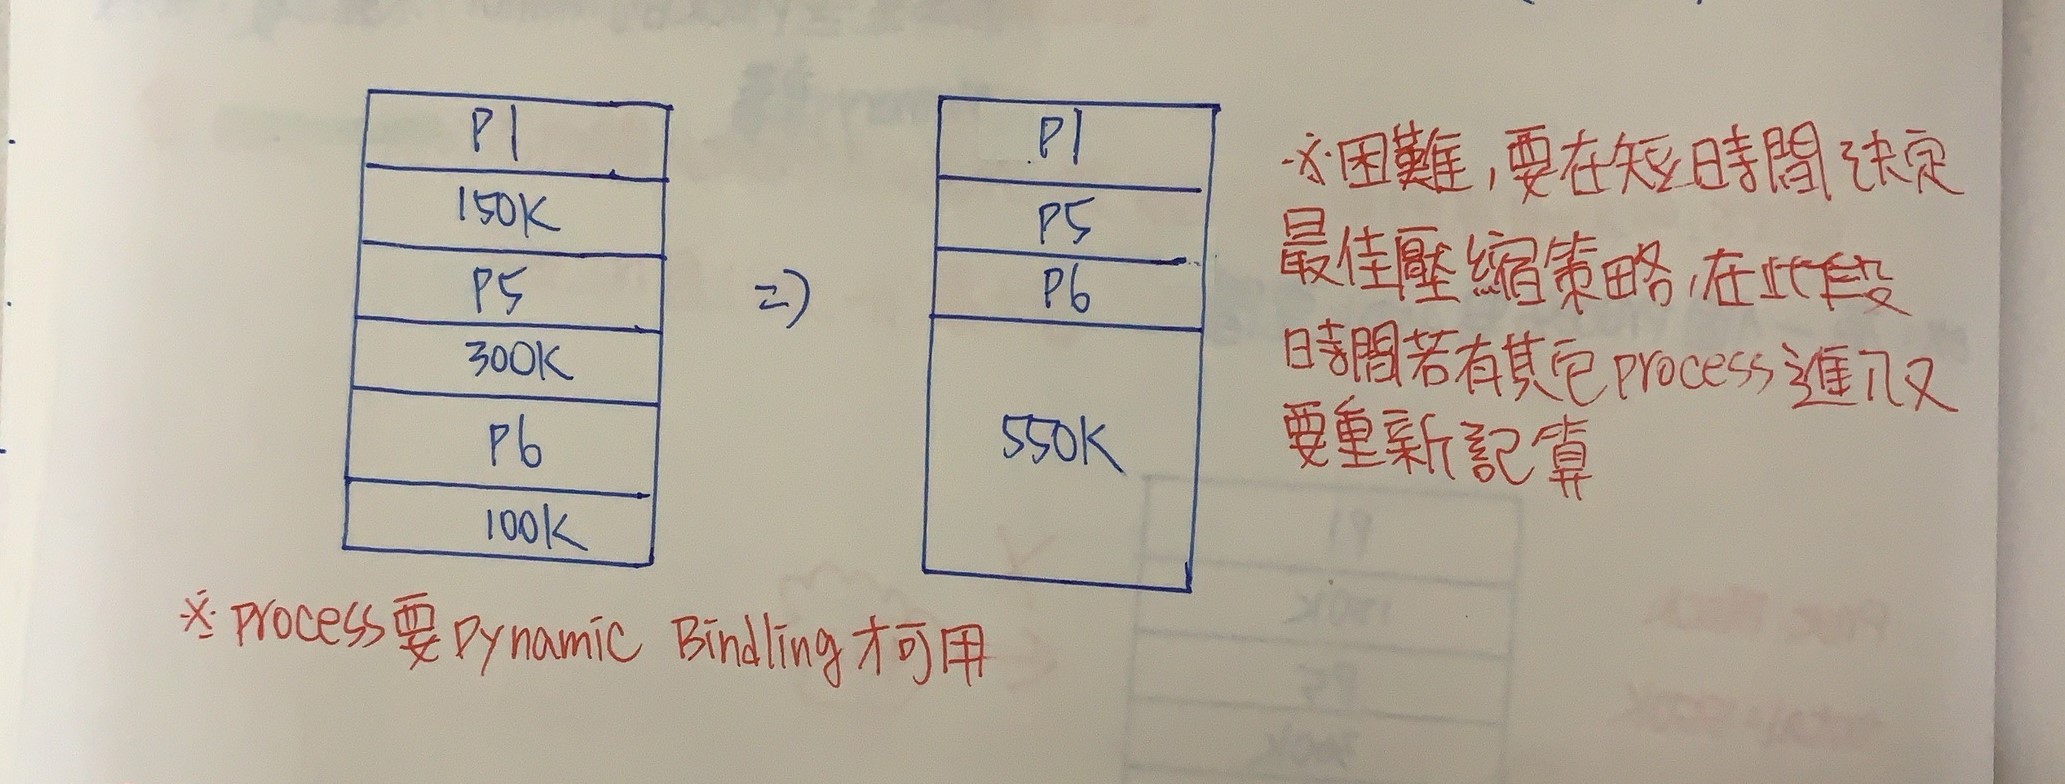 P1
150K
P5
300K
P6
100K
=)
P1
P5
P6
550K
※困難,要在短時間決定
最佳壓縮策略,在此段
時間若有其它process進入又
要重新記算
※process要Dynamic Bindling才可用